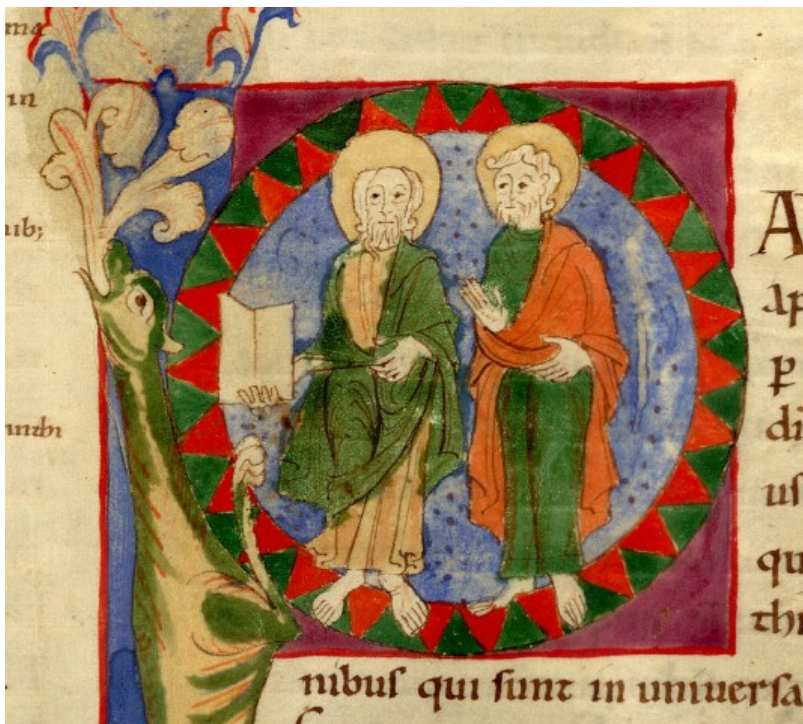 ma
in
P A
ap
ꝑ
di
uſ
qu
thi
nibuſ qui ſunt in uniuerſa